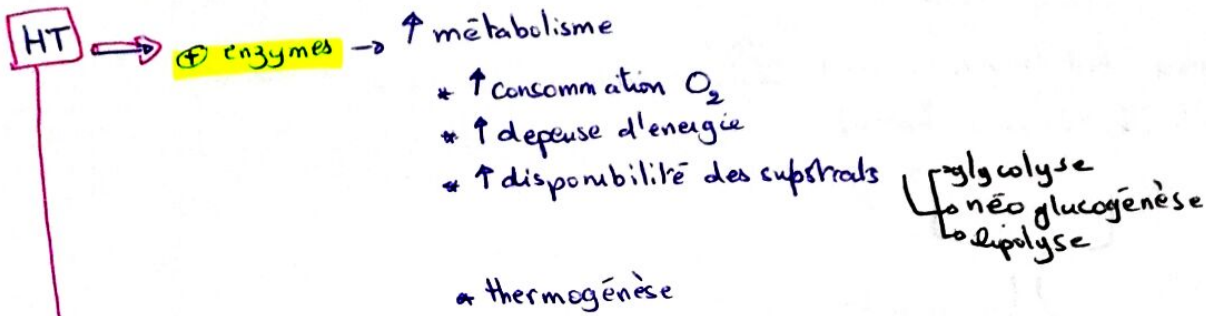 HT ⇒ ⊕ enzymes → ↑ mētabolisme
* ↑ consommation O₂
* ↑ depense d'energie
* ↑ disponibilité des substrats
glycolyse
néoglucogénèse
lipolyse
* thermogénèse